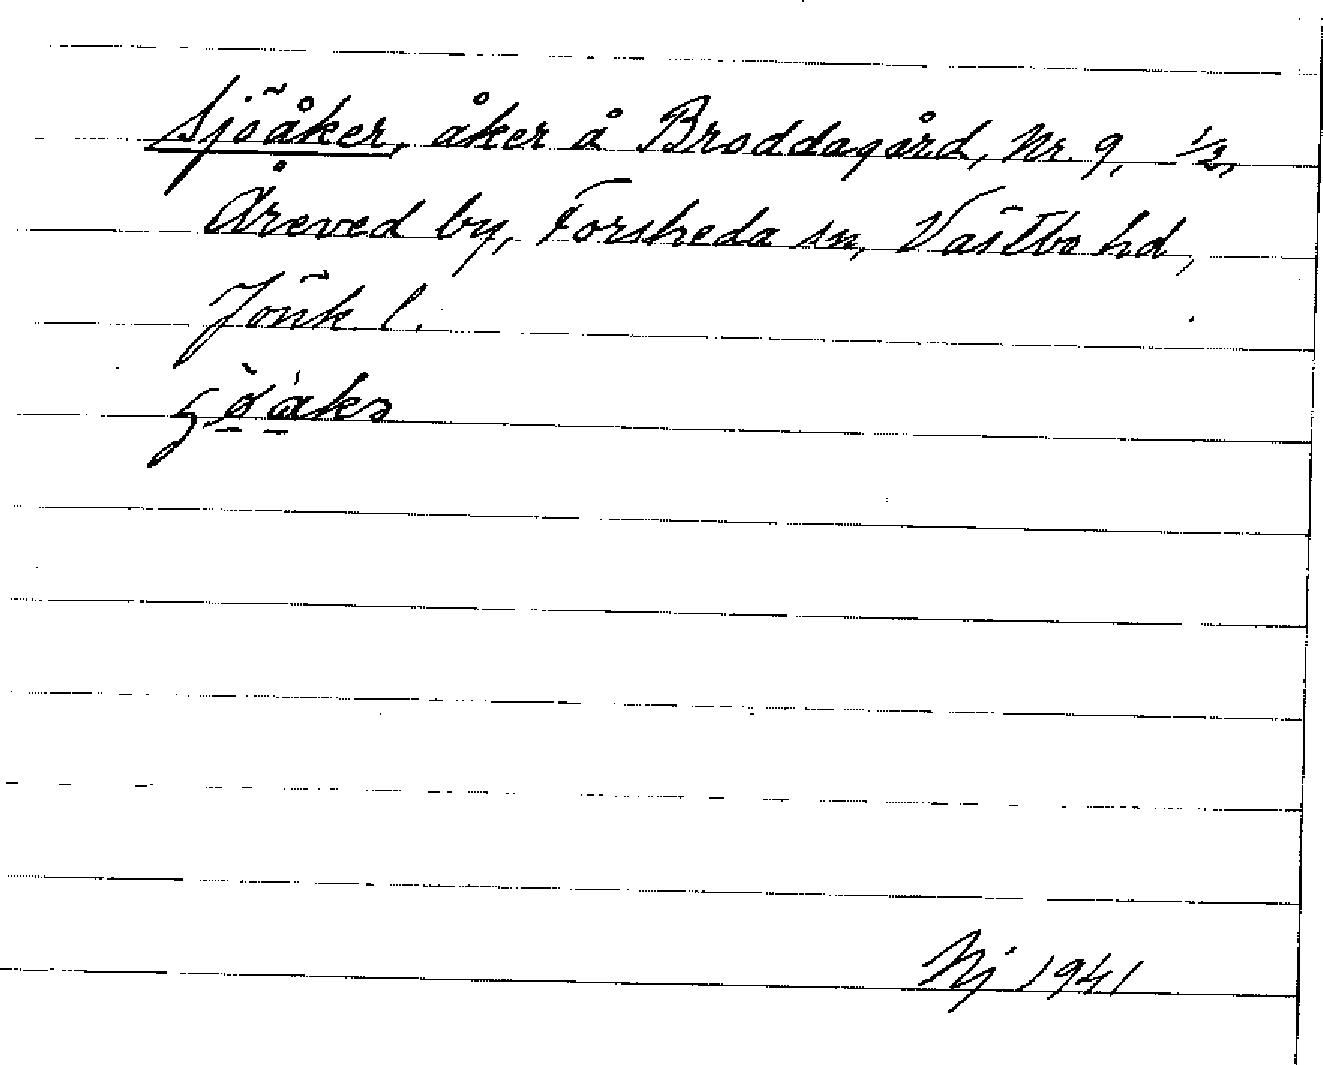 Sjöåker, åker å Broddagård, Nr. 9, 1/2,
Åreved by, Forsheda sn, Västbo hd,
Jönk l.
Nj 1941